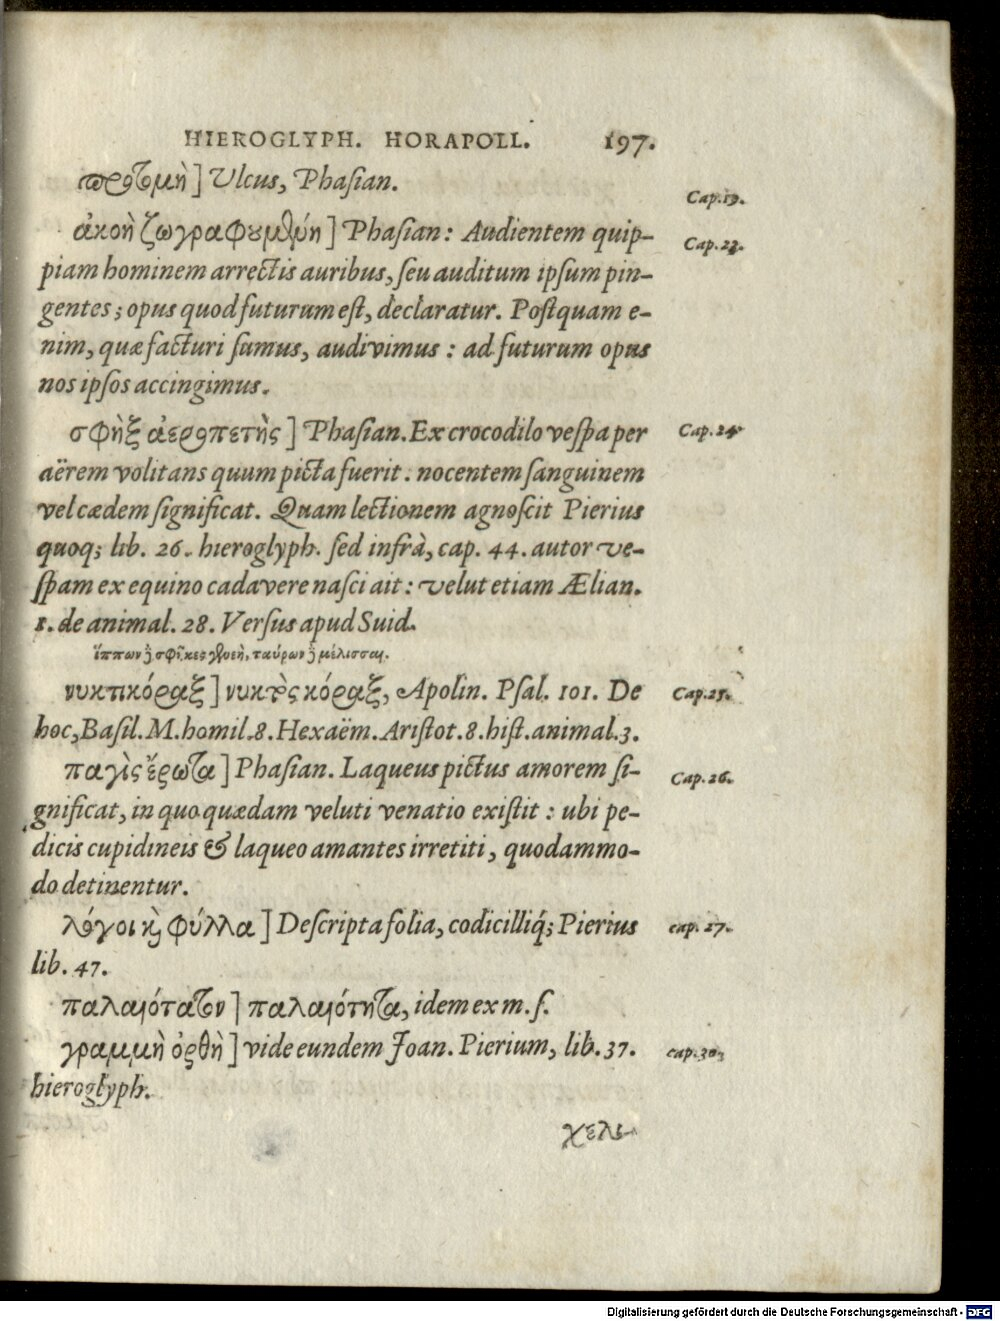 HIEROGLYPH. HORAPOLL. 197.
προτομὴ] Ulcus, Phaſian.
Cap.19.
ἀκοὴ ζωγραφουμένη] Phaſian: Audientem quip-
Cap.23.
piam hominem arrectis auribus, ſeu auditum ipſum pin-
gentes; opus quod futurum eſt, declaratur. Poſtquam e-
nim, quæ facturi ſumus, audivimus: ad futurum opus
nos ipſos accingimus.
σφὴξ ἀεροπετὴς] Phaſian. Ex crocodilo veſpa per
Cap.24.
aërem volitans quum picta fuerit: nocentem ſanguinem
vel cædem ſignificat. Quam lectionem agnoſcit Pierius
quoq; lib. 26. hieroglyph. ſed infrà, cap. 44. autor ve-
ſpam ex equino cadavere naſci ait: velut etiam Ælian.
1. de animal. 28. Verſus apud Suid.
ἵππων δὲ σφῆκες γενεὴ, ταύρων δὲ μέλισσαι.
νυκτικόραξ] νυκτὸς κόραξ, Apolin. Pſal. 101. De
Cap.25.
hoc, Baſil. M. homil. 8. Hexaëm. Ariſtot. 8. hiſt. animal. 3.
παγὶς ἔρωτα] Phaſian. Laqueus pictus amorem ſi-
Cap.26.
gnificat, in quo quædam veluti venatio exiſtit: ubi pe-
dicis cupidineis & laqueo amantes irretiti, quodammo-
do detinentur.
λόγοι καὶ φύλλα] Deſcripta folia, codicilliq́; Pierius
cap.27.
lib. 47.
παλαιότατον] παλαιότητα, idem ex m. ſ.
γραμμὴ ὀρθὴ] vide eundem Joan. Pierium, lib. 37.
cap.30.
hieroglyph.
χελι-
Digitalisierung gefördert durch die Deutsche Forschungsgemeinschaft - DFG